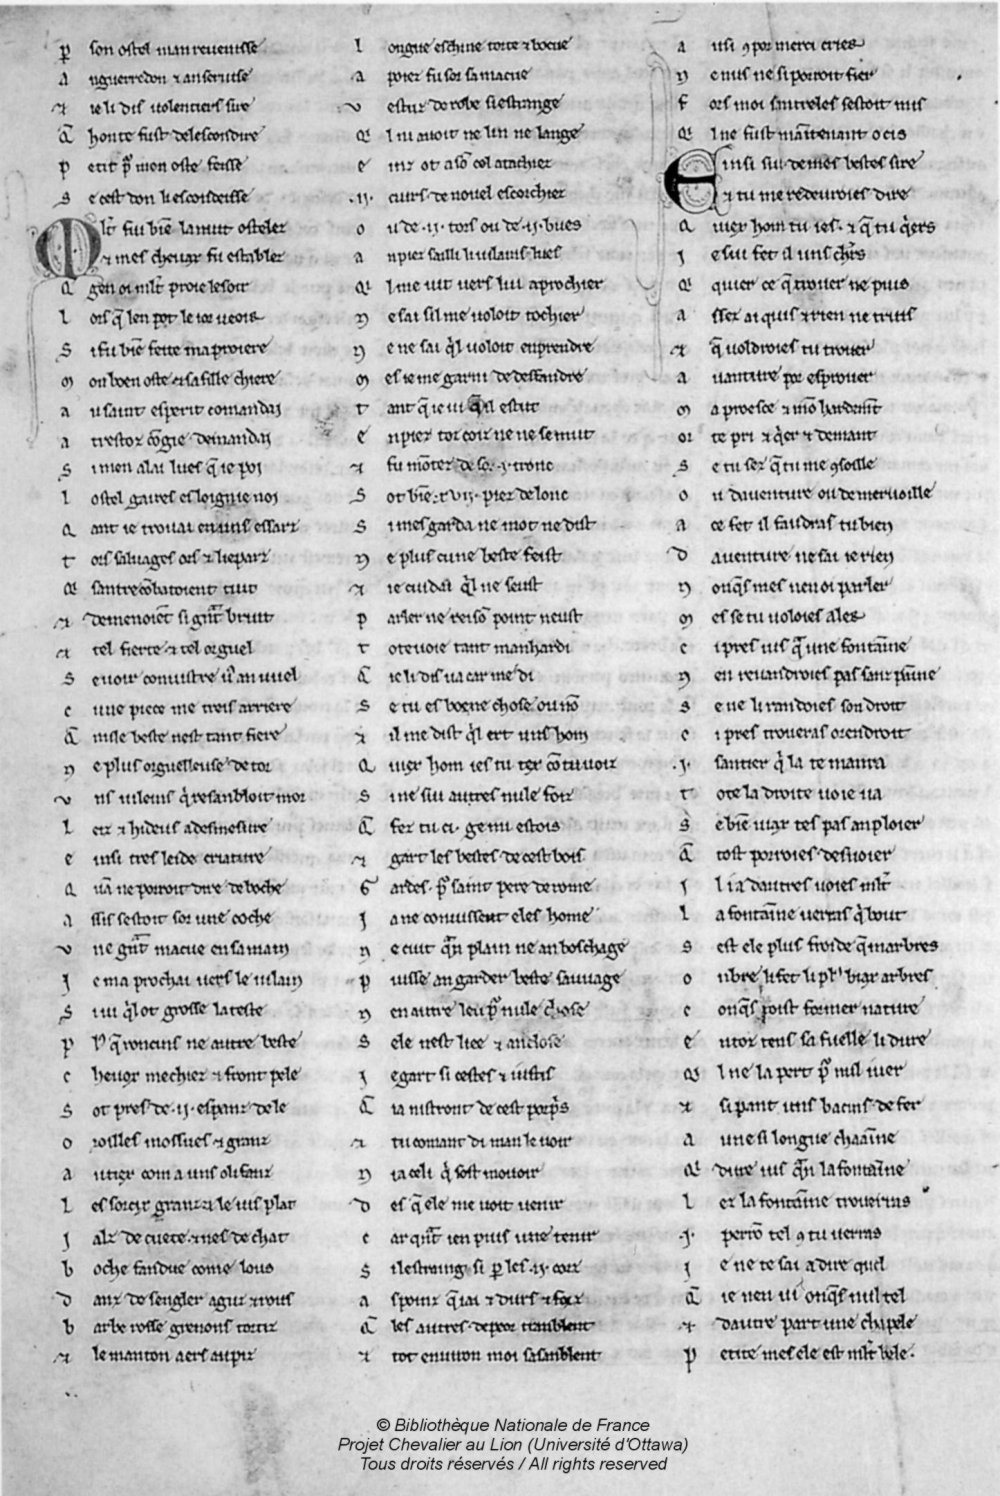 P son ostel m an revenisse
A n guerredon & an servise
& ie li dis volentiers sire
C honte fust del escondire
P etit por mon oste feisse
S e cest don li escondeisse
M lt fui bien la nuit ostelez
& mes chevax fu establez
Q gen oi mlt proie le soir
L ors que len pot le ior veoir
S i fu bien fette ma proiere
M on boen oste & sa fille chiere
A u saint esperit comandai
A trestoz congie demandai
S i men alai lues que ie poi
L ostel gaires esloignie noi
Q ant ie trovai en uns essarz
T ors salvages ors & lieparz
Q santreconbatoient tuit
& demenoient si grant bruit
& tel fierte & tel orguel
S e voir conuistre vos an vuel
C une piece me treis arriere
C nule beste nest tant fiere
N e plus orguelleuse de tor
V ns vileins qui resanbloit mor
L eiz & hideus a desmesure
E insi tres leide criature
Q uan ne porroit dire de boche
A ssis sestoit sor une coche
V ne grant macue en sa main
I e maprochai vers le vilain
S i vi quil ot grosse la teste
P lus que roncins ne autre beste
C hevox mechiez & front pele
S ot pres de .ii. espanz de le
O roilles mossues & granz
A utiex com a uns olifanz
L es sorcix granz & le vis plat
I alz de cuete & nes de chat
B oche fandue come lous
D anz de sengler aguz & rous
B arbe rosse grenons tortiz
& le manton aers au piz
L ongue eschine torte & bocue
A poiez fu sor sa macue
V estuz de robe si estrange
Q l ni avoit ne lin ne lange
E inz ot a son col atachiez
.ii. cuirs de novel escorchiez
O u de .ii. tors ou de .ii. bues
A n piez sailli li vilains lues
Q l me vit vers lui aprochier
N e sai sil me voloit tochier
N e ne sai quil voloit enprendre
M es ie me garni de desfandre
T ant que ie vi que il estut
E n piez toz coiz ne ne se mut
& fu montez desor .i. tronc
S ot bien .xvii. piez de lonc
S i mesgarda ne mot ne dist
N e plus cune beste feist
& ie cuidai quil ne seust
P arler ne reison point neust
T ote voie tant manhardi
C ie li dis va car me di
S e tu es boene chose ou non
& il me dist quil ert uns hom
Q uiex hom ies tu tex con tu voiz
S i ne sui autres nule foiz
C fez tu ci. ge mi estois
& gart les bestes de cest bois
G ardes. por saint pere de rome
I a ne conuissent eles home
N e cuit quan plain ne an boschage
P uisse an garder beste sauvage
N en autre leu por nule chose
S ele nest liee & anclose
I e gart si cestes & iustis
C ia nistront de cest porpris
& tu comant di man le voir
N i a celi qui sost movoir
D es que ele me voit venir
C ar quant ien puis une tenir
S i lestraing si par les .ii. corz
A s poinz que iai & durs & forz
C les autres de peor tranblent
& tot environ moi sasanblent
A usi con por merci crier
N e nus ne si porroit fier
F ors moi santreles sestoit mis
Q l ne fust maintenant ocis
E insi sui de mes bestes sire
& tu me redevroies dire
Q uiex hom tu ies. & que tu quiers
I e sui fet il uns chrs
Q quier ce que trover ne puis
A ssez ai quis & rien ne truis
& que voldroies tu trover
A vanture por esprover
M a proesce & mon hardement
Or te pri & quier & demant
S e tu sez que tu me consoille
O u daventure ou de mervoille
A ce fet il faudras tu bien
D aventure ne sai ie rien
N onques mes nen oi parler
M es se tu voloies aler
C i pres iusqua une fontainne
N en revandroies pas sanz painne
S e ne li randoies son droit
C i pres troveras orendroit
.i. santier qui la te manra
T ote la droite voie va
S e bien viax tes pas anploier
C tost porroies desvoier
I l i a dautres voies mlt
L a fontainne verras qui bout
S est ele plus froide que marbres
O nbre li fet li plus biax arbres
C onques poist former nature
E n toz tens sa fuelle li dure
Q l ne la pert por nul iver
& si pant uns bacins de fer
A une si longue chaainne
Q dure iusquan la fontainne
L ez la fontainne troverras
.i. perron tel con tu verras
I e ne te sai a dire quel
C ie nen vi onques nul tel
& dautre part une chapele
P etite mes ele est mlt bele.
© Bibliothèque Nationale de France
Projet Chevalier au Lion (Université d'Ottawa)
Tous droits réservés / All rights reserved